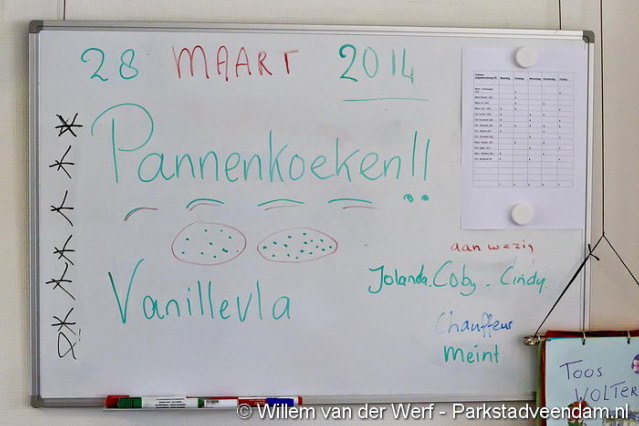 28 MAART 2014
Pannenkoeken!!
Vanillevla
aanwezig
Jolanda. Coby. Cindy.
Chauffeur
Meint
TOOS
WOLTER
© Willem van der Werf - Parkstadveendam.nl